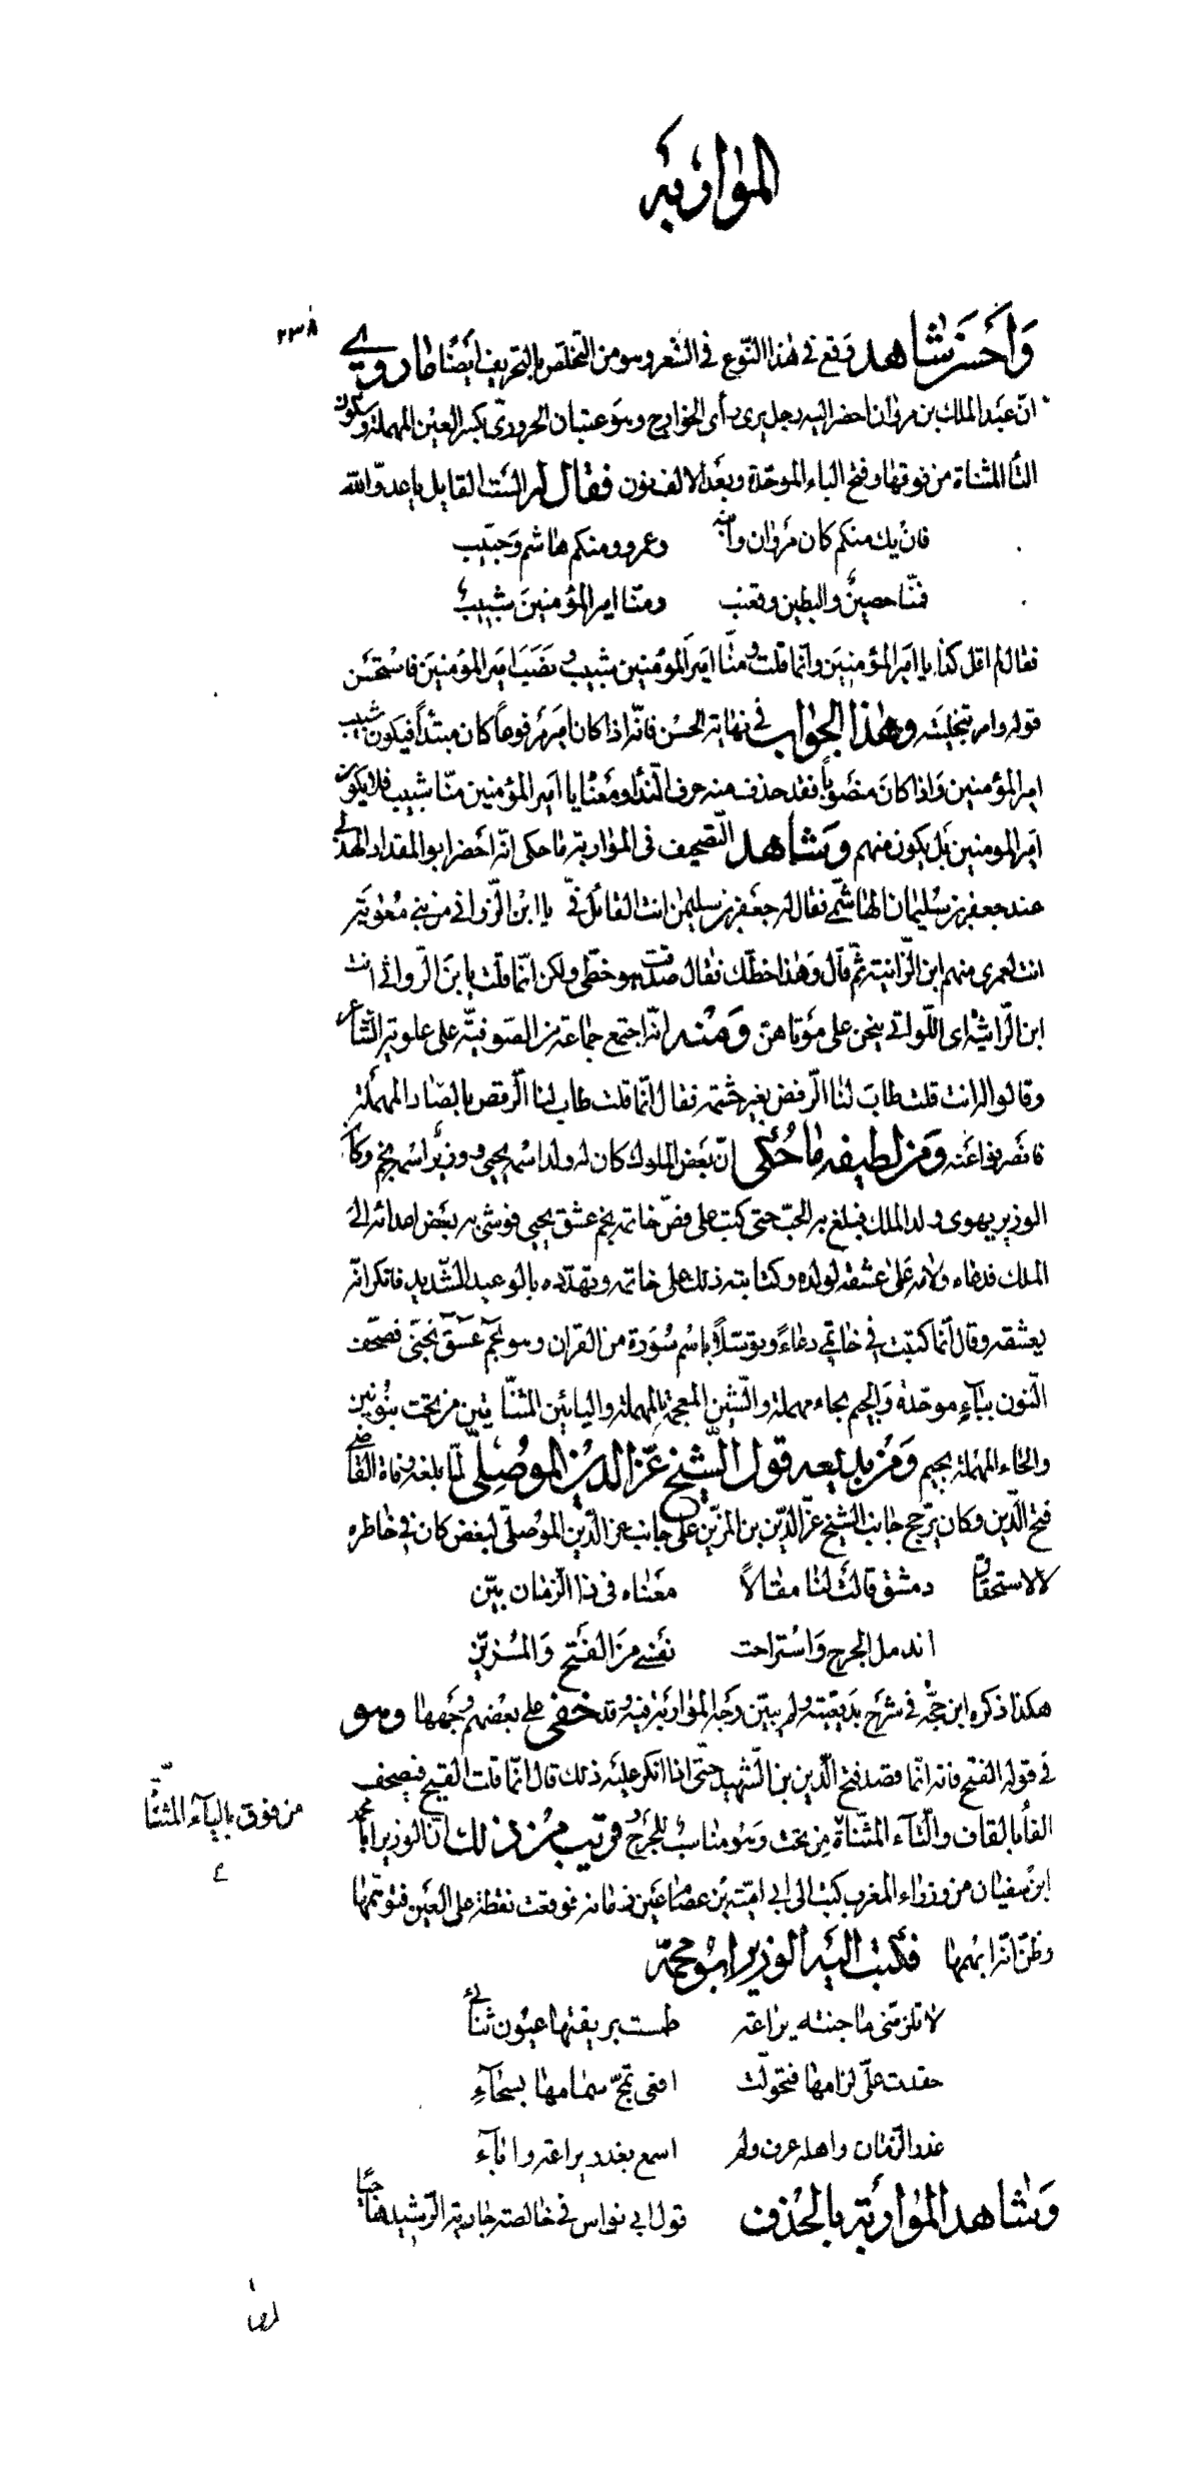 المواربة
٢٣٨
وَأحسَن شاهد وَقع في هذا النّوع في الشعر وهو من التخلّص بالتحريف أيضًا ما روي
انّ عبد الملك بن مروان احضر اليه رجل يرى رأى الخوارج وهو عتبان الحرورىّ بكسر العين المهملة وسكون
التآ المثناة من فوقها وفتح الباء الموحّدة وبعد الالف نون فقال له الست القايل يا عدوّ الله
فان يك منكم كان مروان وابنه وعمرو ومنكم هاشم وحبيب
فمنّا حصينٌ والبطين وقعنب ومنّا امير المؤمنين شبيب
فقال لم اقل كذا يا امير المؤمنين وانما قلت ومنّا اميرَ المؤمنين شبيب ونصَب امير المؤمنين فاستحسَن
قوله وامر بتخليته وهذا الجواب في نهاية الحسن فانّه اذا كان امير مرفوعًا كان مبتدأً فيكون شبيب
امير المؤمنين وَاذا كان منصوبًا فقد حذف منه حرف النّدآ ومعناه يا امير المؤمنين منّا شبيب فلا يكون
امير المومنين بل يكون منهم وشاهد التّصحيف فى المواربة ما حكى انّه احضر ابو المقداد الهذلى
عند جعفر بن سليمان الهاشمّى فقال له جعفر بن سليمان انت القائل فىّ يا ابن الزوانى من بنى معوية
انت لعمرى منهم ابن الزّانية ثم قال وَهذا خطّك فقال صدقت هو خطّى ولكن انّما قلت يا بن الرّواثى انت
ابن الرّاثية اى اللّواتى ينحن على موتاهنّ وَمنه انّه اجتمع جماعة من الصّوفيّة على علوية الشّاعر
وقالوا له انت قلت طاب لنا الرّفض بغير حشمة فقال انّما قلت طاب لنا الرّقص بالصّاد المهملة
فانصرفوا عنه وَمن لطيفه ما حُكى انّ بعض الملوك كان له ولد اسمه يحيى ووزير اسمه نجم وكان
الوزير يهوى ولد الملك فبلغ به الحبّ حتى كتب على فصّ خاتمه نجم عشق يحيى فوشى به بعض اعدائه الى
الملك فدعاه ولامه على عشقه لولده وكتابته ذلك على خاتمه وتهدّده بالوعيد الشّديد فانكر انّه
يعشقه وقال انّما كتبت في خاتمي دعاءً وتوسّلاً باسم سُورة من القران وهو بحمٓ عٓسٓقٓ نجّنى فصحّف
النّون ببآءٍ موحّدة وَالجيم بحاء مهملة والشّين المعجمة بالمهملة واليائين المثنّاتين من تحت بنُونين
والحاء المهملة بجيم وَمن بديعه قول الشّيخ عزّ الدين الموصلىّ لمّا بلغه وفاة القاضى
فتح الدّين وكان يرجّح جانب الشيخ عزّ الدّين بن المزيّن على جانب عز الدّين الموصلّى لبغض كان في خاطره
لا لاستحقاق دمشق قالت لنا مقالاً معناه فى ذا الزمان بيّن
اندمل الجرح وَاستراحت نفسى من الفتح وَالمُزيّن
هكذا ذكره ابن حجّه في شرح بديعيته ولم يبيّن وَجه المواربة فيه وقد خفى على بعضهم وجهها وهو
في قوله الفتح فانه انّما قصد فتح الدّين بن الشّهيد حتّى اذا انكر عليه ذلك قال انّما قلت القيح فيصحف
الفآ بالقاف والتآء المثنّاة من تحت وهو مناسب للجرح وقريب من ذلك انّ الوزير ابا محمد
من فوق بالياء المثنّاة
ابن سفيان من وزراء المغرب كتب الى ابى اميّة بن عصام عين زمانه فوقعت نقطة على العين فتوهّمها
وظنّ انّه ابهمها فكتب اليه الوزير ابو محمّد
لا تلزمنّى ما جنته يراعة طمست بريقتها عيون ثنائي
حقدت علىّ لزامها فتحوّلت افعى تمجّ سمامها بسحآءِ
غدر الزمان واهله عرف ولم اسمع بغدر يراعة وانآء
وَشاهد المواربة بالحذف قول ابى نواس في خالصة جارية الرّشيد هاجيًا